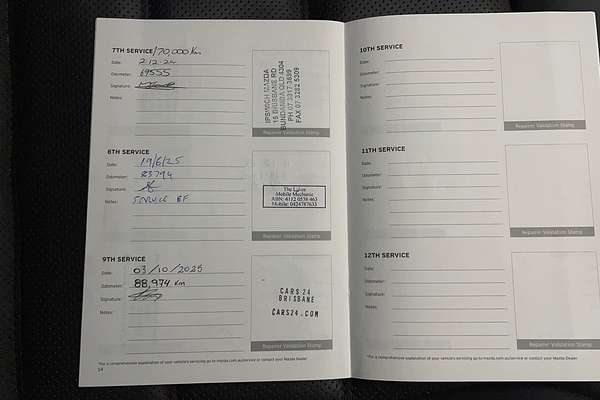 7TH SERVICE/70,000Km
Date: 2.12.24
Odometer: 69555
Signature:
Notes:
IPSWICH MAZDA
15 BRISBANE RD
BUNDAMBA QLD 4304
PH 07 3817 3699
FAX 07 3282 5309
Repairer Validation Stamp
8TH SERVICE
Date: 19/6/25
Odometer: 83794
Signature:
Notes: SERVICE EF
The Lakes
Mobile Mechanic
ABN: 6112 0538 463
Mobile: 0424787633
Repairer Validation Stamp
9TH SERVICE
Date: 03/10/2025
Odometer: 88,974 Km
Signature:
Notes:
CARS24
BRISBANE
CARS24.COM
Repairer Validation Stamp
*For a comprehensive explanation of your vehicle's servicing go to mazda.com.au/service or contact your Mazda Dealer
14
10TH SERVICE
Date:
Odometer:
Signature:
Notes:
Repairer Validation Stamp
11TH SERVICE
Date:
Odometer:
Signature:
Notes:
Repairer Validation Stamp
12TH SERVICE
Date:
Odometer:
Signature:
Notes:
Repairer Validation Stamp
*For a comprehensive explanation of your vehicle's servicing go to mazda.com.au/service or contact your Mazda Dealer